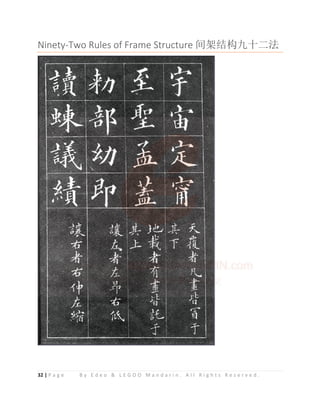 Ninety-Two Rules of Frame Structure 间架结构九十二法
宇宙定甯
天覆者凡畫皆冒于
其下
至聖孟蓋
地載者有畫皆託于
其上
勑部幼即
讓左者左昂右低
讀蝀議績
讓右者右伸左縮
32 | Page By Edeo & LEGOO Mandarin. All Rights Resereed.